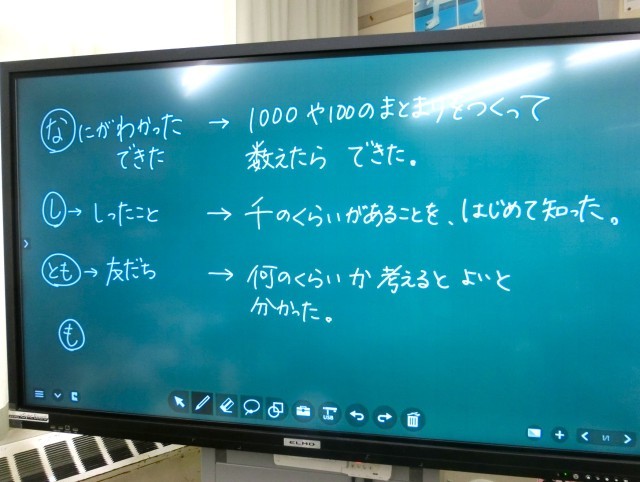 な にがわかった → 1000や100のまとまりをつくって
できた 数えたら できた。
し → しったこと → 千のくらいがあることを、はじめて知った。
とも → 友だち → 何のくらいか 考えると よいと
分かった。
も
USB
ELMO
1/1